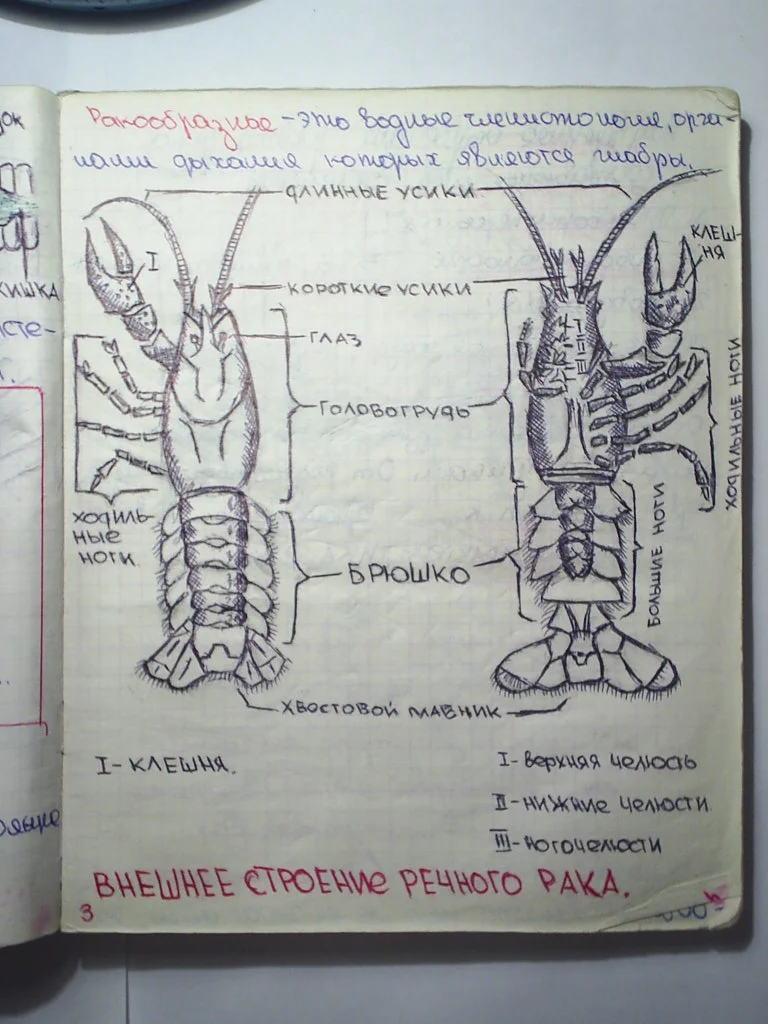 Ракообразные - это водные членистоногие, орга-
нами дыхания которых являются жабры.
ДЛИННЫЕ УСИКИ
КЛЕШ-
НЯ
I
КОРОТКИЕ УСИКИ
КИШКА
ГЛАЗ
I
II
III
ГОЛОВОГРУДЬ
ХОДИЛЬНЫЕ НОГИ
ХОДИЛЬ-
НЫЕ
НОГИ
БОЛЬШИЕ НОГИ
БРЮШКО
ХВОСТОВОЙ ПЛАВНИК
I - КЛЕШНЯ.
I - верхняя челюсть
II - нижние челюсти
III - ногочелюсти
ВНЕШНЕЕ СТРОЕНИЕ РЕЧНОГО РАКА.
3